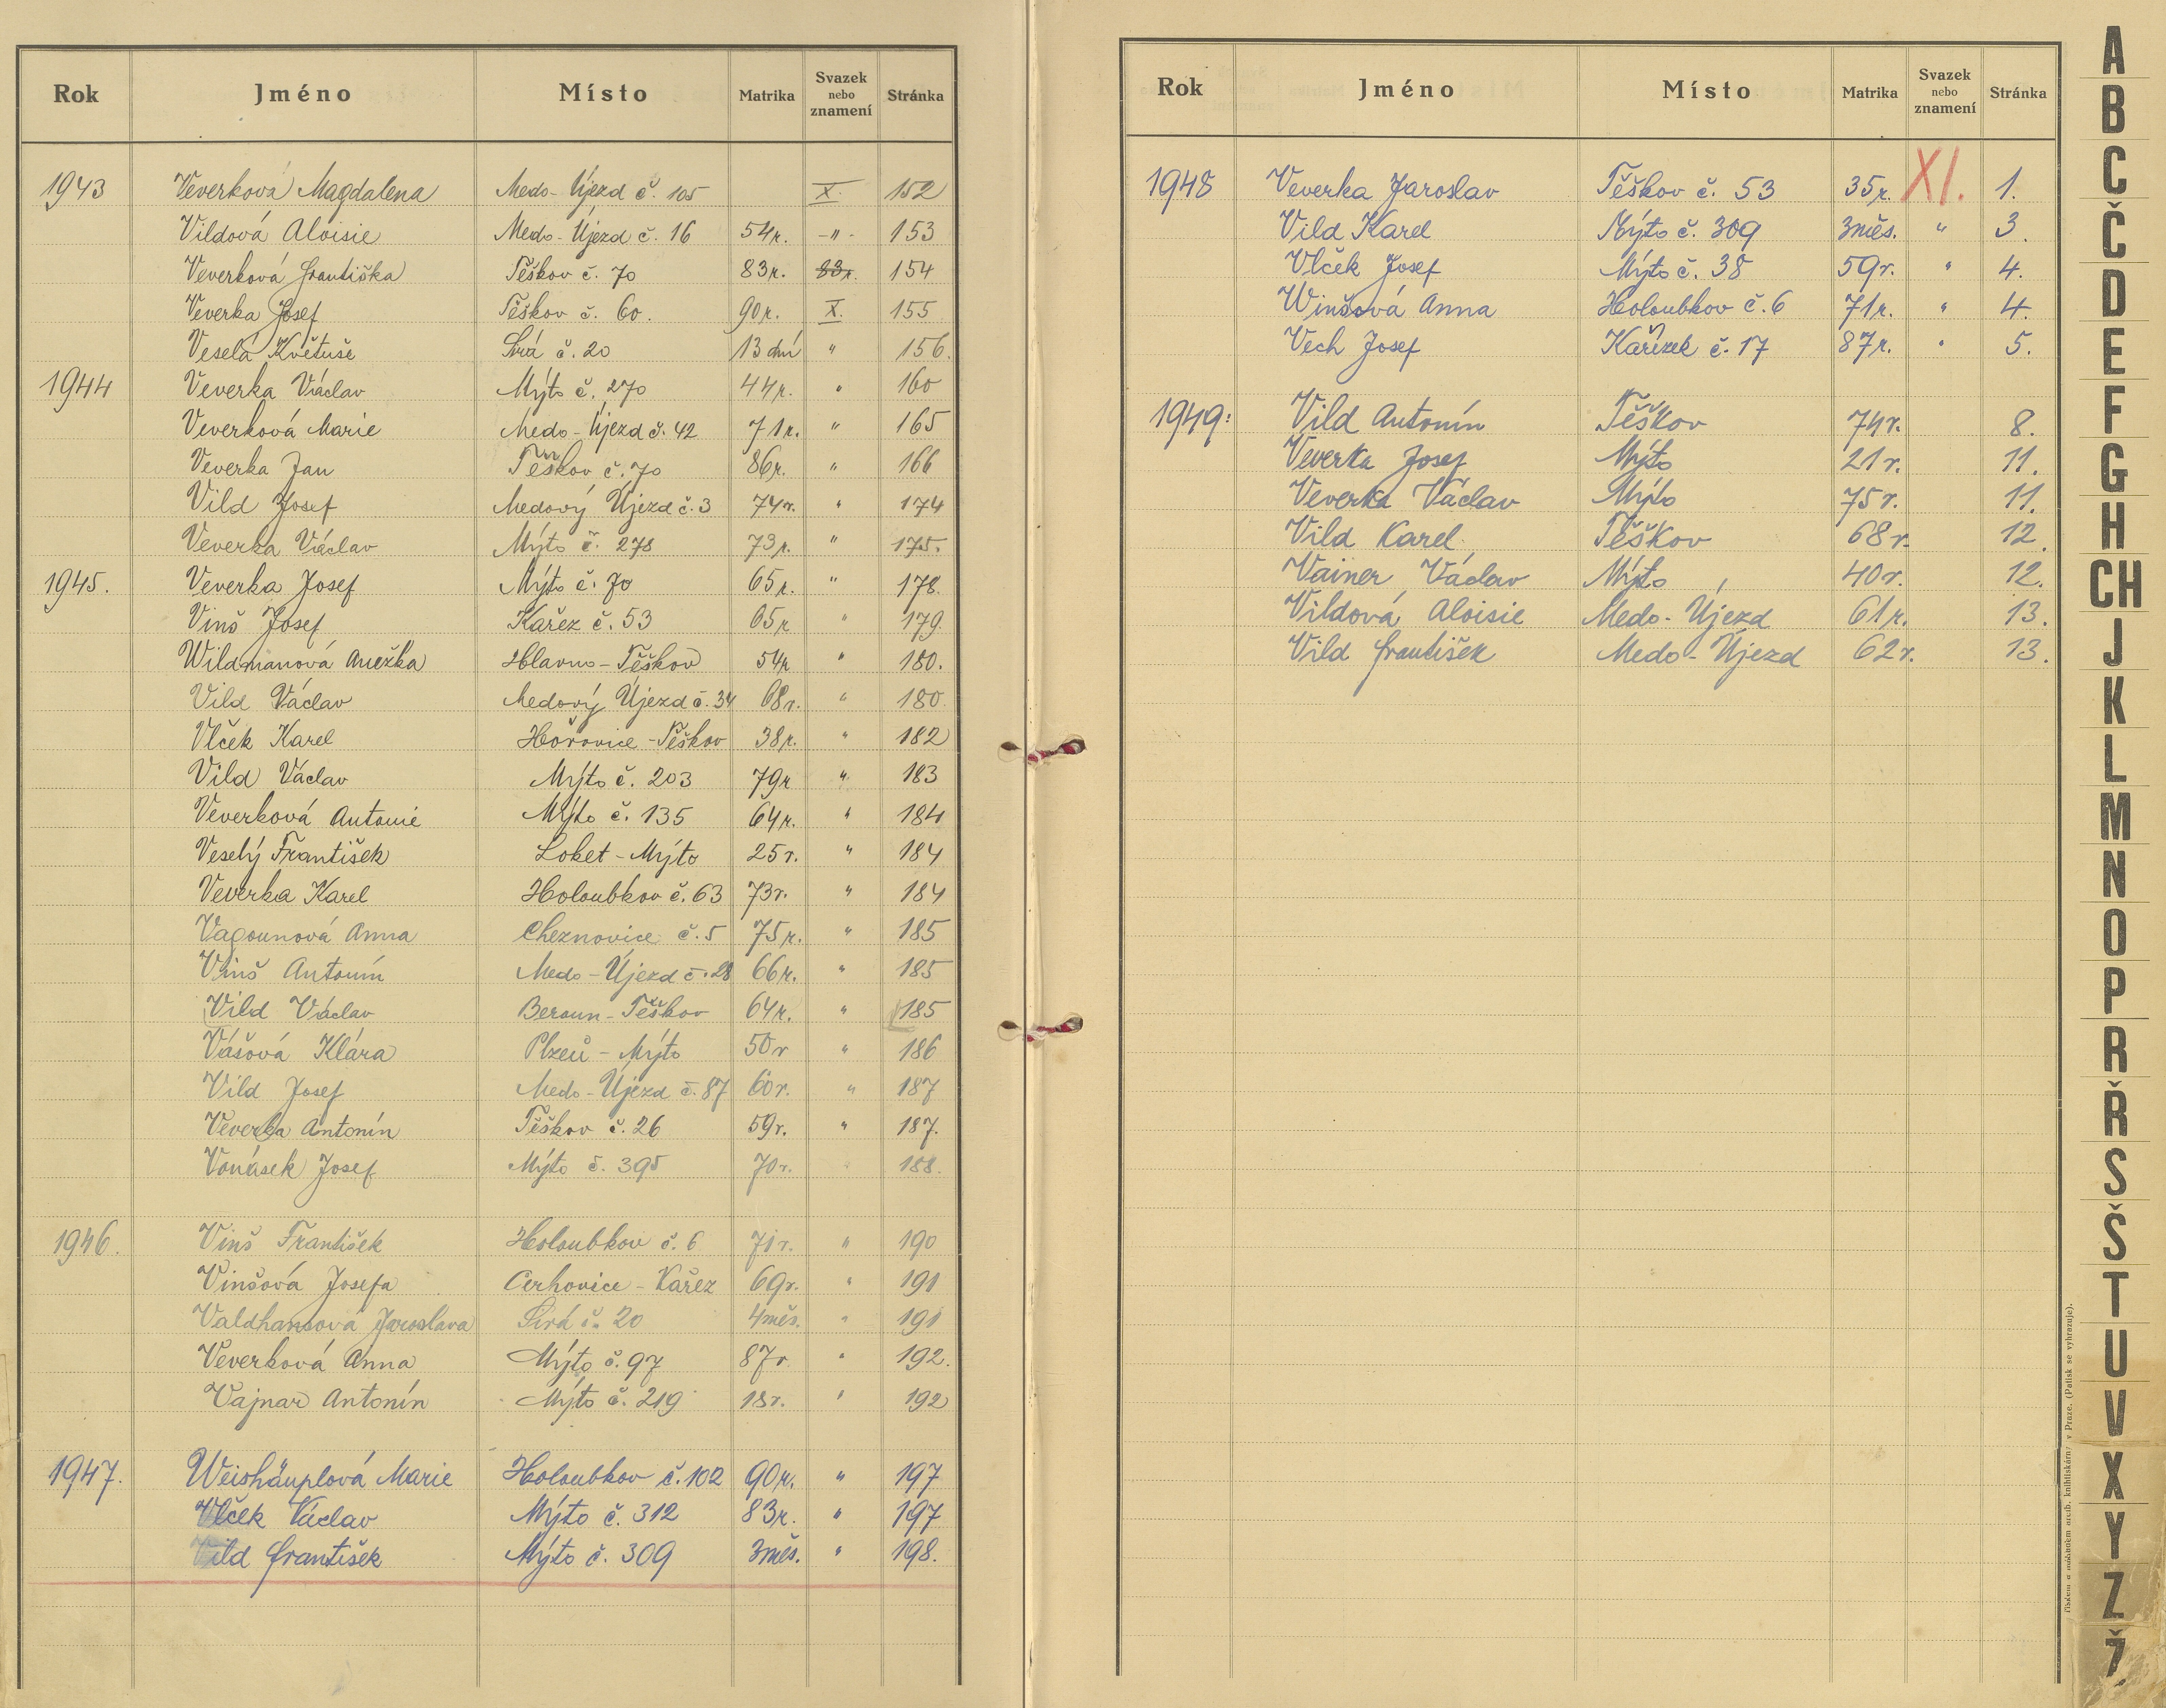 Rok Jméno Místo Matrika Svazek nebo znamení Stránka
1943 Veverková Magdalena Medo-Újezd č. 105 X. 152
Vildová Aloisie Medo-Újezd č. 16 54r. -"- 153
Veverková Františka Těškov č. 70 83r. 83r. 154
Veverka Josef Těškov č. 60. 90r. X. 155
Veselá Květuše Sirá č. 20 13 dní " 156.
1944 Veverka Václav Mýto č. 270 44r. " 160
Veverková Marie Medo-Újezd č. 42 71r. " 165
Veverka Jan Těškov č. 70 86r. " 166
Vild Josef Medový Újezd č. 3 74r. " 174
Veverka Václav Mýto č. 278 73r. " 175.
1945. Veverka Josef Mýto č. 70 65r. " 178.
Vinš Josef Kařez č. 53 65r " 179.
Wildmanová Anežka Hlavno-Těškov 54r " 180.
Vild Václav Medový Újezd č. 34 68r. " 180.
Vlček Karel Hořovice-Těškov 38r. " 182
Vild Václav Mýto č. 203 79r " 183
Veverková Antonie Mýto č. 135 64r. " 184
Veselý František Loket-Mýto 25r. " 184
Veverka Karel Holoubkov č. 63 73r. " 184
Vacounová Anna Cheznovice č. 5 75r. " 185
Vinš Antonín Medo-Újezd č. 28 66r. " 185
Vild Václav Beroun-Těškov 64r. " 185
Vášová Klára Plzeň-Mýto 50r " 186
Vild Josef Medo-Újezd č. 87 60r. " 187
Veverka Antonín Těškov č. 26 59r. " 187.
Vonásek Josef Mýto č. 395 70r. " 188.
1946. Vinš František Holoubkov č. 6 71r. " 190
Vinšová Josefa Cerhovice-Kařez 69r. " 191
Valdhansová Jaroslava Sirá č. 20 4měs. " 191
Veverková Anna Mýto č. 97 87r. " 192.
Vajnar Antonín Mýto č. 219 18r. " 192
1947. Weishäuplová Marie Holoubkov č. 102 90r. " 197
Vlček Václav Mýto č. 312 83r. " 197
Vild František Mýto č. 309 3měs. " 198.
Rok Jméno Místo Matrika Svazek nebo znamení Stránka
1948 Veverka Jaroslav Těškov č. 53 35r. XI. 1.
Vild Karel Mýto č. 309 3měs. " 3.
Vlček Josef Mýto č. 38 59r. " 4.
Winšová Anna Holoubkov č. 6 71r. " 4.
Vech Josef Kařízek č. 17 87r. " 5.
1949: Vild Antonín Těškov 74r. 8.
Veverka Josef Mýto 21r. 11.
Veverka Václav Mýto 75r. 11.
Vild Karel Těškov 68r. 12.
Vainer Václav Mýto 40r. 12.
Vildová Aloisie Medo-Újezd 61r. 13.
Vild František Medo-Újezd 62r. 13.
A
B
C
Č
D
E
F
G
H
CH
J
K
L
M
N
O
P
R
Ř
S
Š
T
U
V
X
Y
Z
Ž
knihtiskárny v Praze. (Patisk se vyhrazuje).